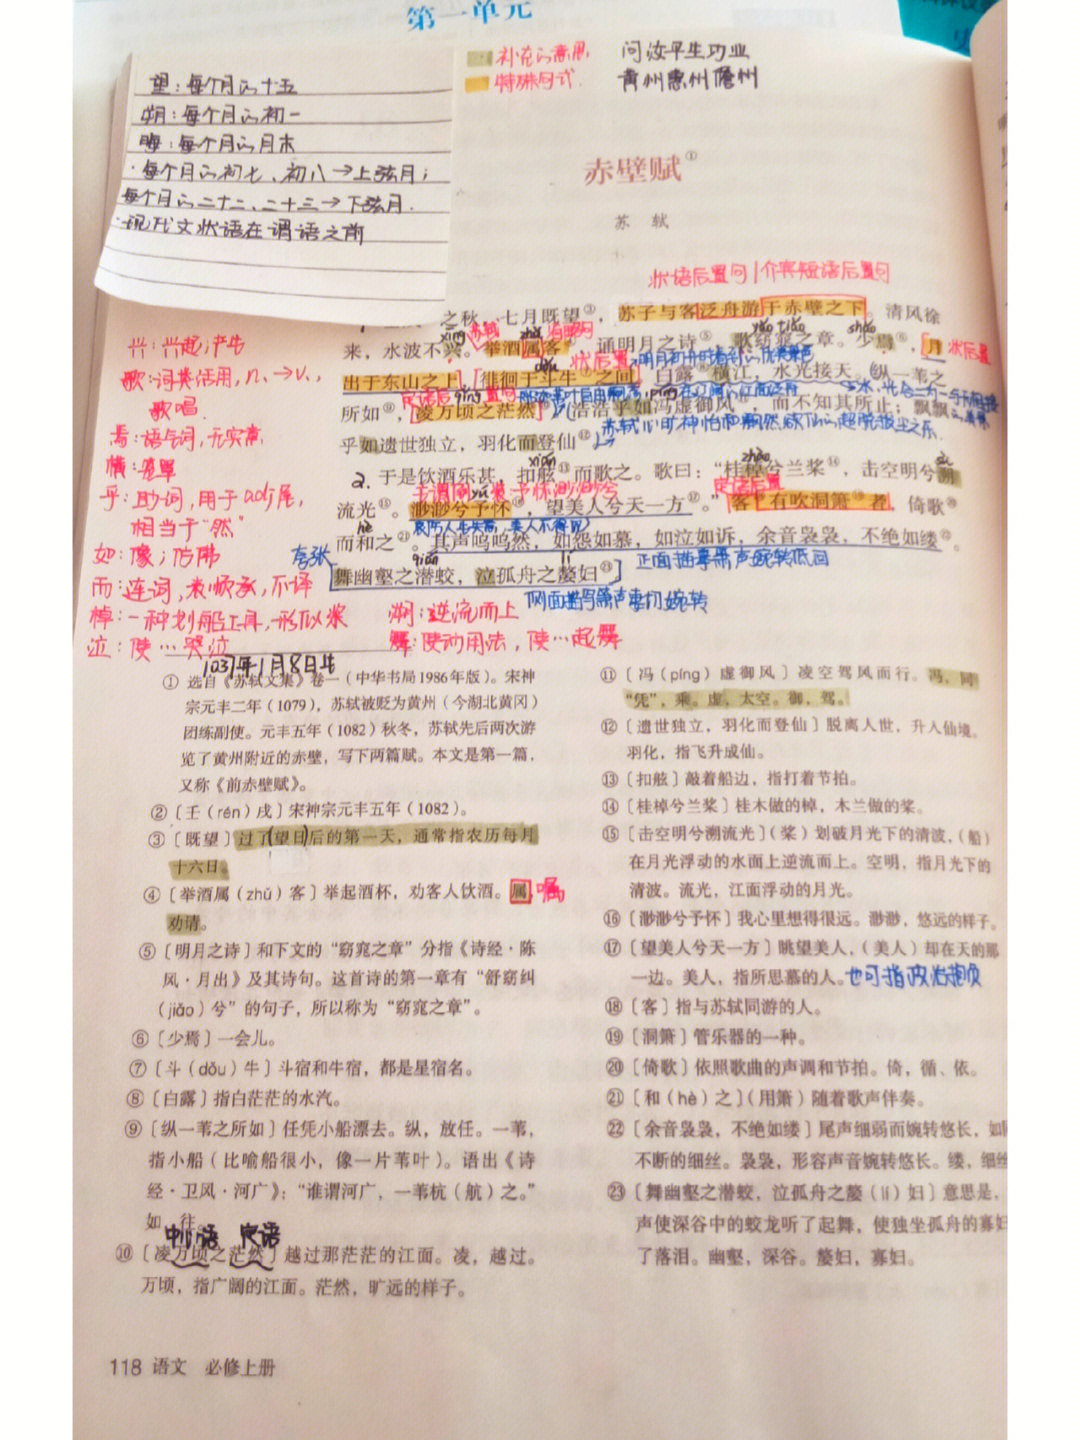 第一单元
望：每个月的十五
朔：每个月的初一
晦：每个月的月末
·每个月的初七、初八→上弦月；
每个月的二十二、二十三→下弦月.
·现代文状语在谓语之前
补充的意思
特殊句式
问汝平生功业
黄州惠州儋州
赤壁赋①
苏 轼
状语后置句/介宾短语后置句
之秋，七月既望③，苏子与客泛舟游于赤壁之下。清风徐
来，水波不兴。举酒属客④，诵明月之诗⑤，歌窈窕之章。少焉⑥，月
出于东山之上，徘徊于斗牛⑦之间。白露⑧横江，水光接天。纵一苇之
所如⑨，凌万顷之茫然⑩。浩浩乎如冯虚御风⑪，而不知其所止；飘飘
乎如遗世独立，羽化而登仙⑫。
2. 于是饮酒乐甚，扣舷⑬而歌之。歌曰：“桂棹兮兰桨⑭，击空明兮溯
流光⑮。渺渺兮予怀⑯，望美人兮天一方⑰。”客⑱有吹洞箫⑲者，倚歌⑳
而和之㉑。其声呜呜然，如怨如慕，如泣如诉，余音袅袅，不绝如缕㉒。
舞幽壑之潜蛟，泣孤舟之嫠妇㉓。
xīng
苏轼
zhǔ
yǎo tiǎo
shāo
状后置
状后置
píng
xián
zhào
sù
定语后置
hè
qián
lí
夸张
正面描摹箫声婉转低回
侧面描写箫声悲切婉转
兴：兴起；产生
歌：词类活用，n.→v.，
歌唱.
焉：语气词，无实意
横：笼罩
乎：助词，用于adj尾，
相当于“然”
如：像；仿佛
而：连词，表顺承，不译
棹：一种划船工具，形似桨
泣：使…哭泣
溯：逆流而上
舞：使动用法，使…起舞
1037年1月8日生
① 选自《苏轼文集》卷一（中华书局1986年版）。宋神
宗元丰二年（1079），苏轼被贬为黄州（今湖北黄冈）
团练副使。元丰五年（1082）秋冬，苏轼先后两次游
览了黄州附近的赤壁，写下两篇赋。本文是第一篇，
又称《前赤壁赋》。
②〔壬（rén）戌〕宋神宗元丰五年（1082）。
③〔既望〕过了望日后的第一天，通常指农历每月
十六日。
④〔举酒属（zhǔ）客〕举起酒杯，劝客人饮酒。属，嘱
劝请。
⑤〔明月之诗〕和下文的“窈窕之章”分指《诗经·陈
风·月出》及其诗句。这首诗的第一章有“舒窈纠
（jiǎo）兮”的句子，所以称为“窈窕之章”。
⑥〔少焉〕一会儿。
⑦〔斗（dǒu）牛〕斗宿和牛宿，都是星宿名。
⑧〔白露〕指白茫茫的水汽。
⑨〔纵一苇之所如〕任凭小船漂去。纵，放任。一苇，
指小船（比喻船很小，像一片苇叶）。语出《诗
经·卫风·河广》：“谁谓河广，一苇杭（航）之。”
如，往。
中心语 定语
⑩〔凌万顷之茫然〕越过那茫茫的江面。凌，越过。
万顷，指广阔的江面。茫然，旷远的样子。
⑪〔冯（píng）虚御风〕凌空驾风而行。冯，同
“凭”，乘。虚，太空。御，驾。
⑫〔遗世独立，羽化而登仙〕脱离人世，升入仙境。
羽化，指飞升成仙。
⑬〔扣舷〕敲着船边，指打着节拍。
⑭〔桂棹兮兰桨〕桂木做的棹，木兰做的桨。
⑮〔击空明兮溯流光〕（桨）划破月光下的清波，（船）
在月光浮动的水面上逆流而上。空明，指月光下的
清波。流光，江面浮动的月光。
⑯〔渺渺兮予怀〕我心里想得很远。渺渺，悠远的样子。
⑰〔望美人兮天一方〕眺望美人，（美人）却在天的那
一边。美人，指所思慕的人。也可指政治抱负
⑱〔客〕指与苏轼同游的人。
⑲〔洞箫〕管乐器的一种。
⑳〔倚歌〕依照歌曲的声调和节拍。倚，循、依。
㉑〔和（hè）之〕（用箫）随着歌声伴奏。
㉒〔余音袅袅，不绝如缕〕尾声细弱而婉转悠长，如同
不断的细丝。袅袅，形容声音婉转悠长。缕，细丝
㉓〔舞幽壑之潜蛟，泣孤舟之嫠（lí）妇〕意思是，
声使深谷中的蛟龙听了起舞，使独坐孤舟的寡妇
了落泪。幽壑，深谷。嫠妇，寡妇。
118 语文 必修上册